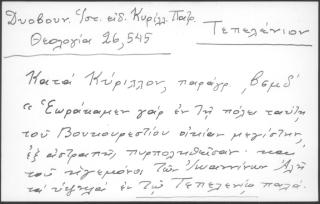 Δυοβουν. Ἱστ. εἰδ. Κυρίλλ. Πατρ.
Θεολογία 26, 545
Τεπελένιον
Κατά Κύριλλον, παράγρ. ͵βσμδ´
"Ἑωράκαμεν γάρ ἐν τῇ πόλει ταύτῃ
τοῦ Βουκουρεστίου οἰκίαν μεγίστην
ἐξ ἀστραπῆς πυρποληθεῖσαν· και
τοῦ ἡγεμόνος τῶν Ἰωαννίνων Ἀλῆ
τά ὑψηλά ἐν τῷ Τεπελενίῳ παλά.